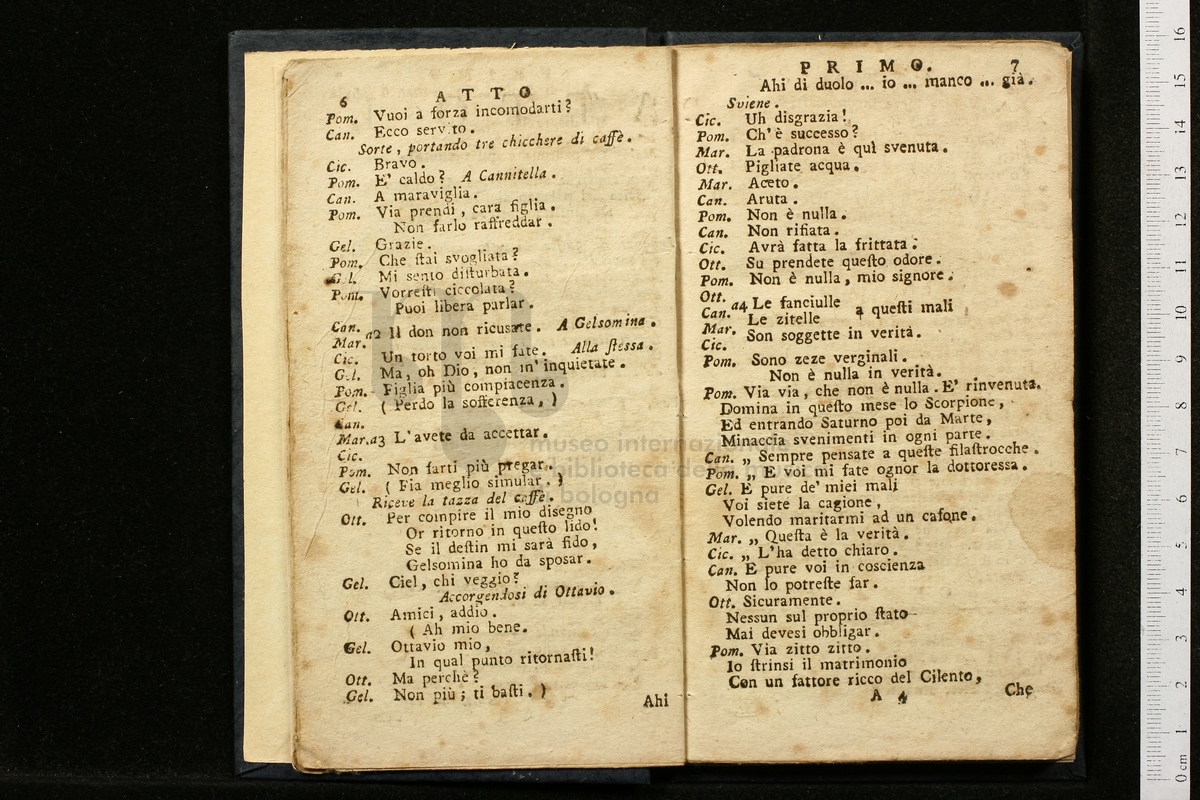 6 ATTO
Pom. Vuoi a forza incomodarti?
Can. Ecco servito.
Sorte, portando tre chicchere di caffè.
Cic. Bravo.
Pom. E' caldo? A Cannitella.
Can. A maraviglia.
Pom. Via prendi, cara figlia.
Non farlo raffreddar.
Gel. Grazie.
Pom. Che ſtai svogliata?
Gel. Mi sento diſturbata.
Pom. Vorreſti ciccolata?
Puoi libera parlar.
Can.
Mar. a2 Il don non ricusate. A Gelsomina.
Cic. Un torto voi mi fate. Alla ſtessa.
Gel. Ma, oh Dio, non m'inquietate.
Pom. Figlia più compiacenza.
Gel. ( Perdo la sofferenza, )
Can.
Mar. a3 L'avete da accettar.
Cic.
Pom. Non farti più pregar.
Gel. ( Fia meglio simular. )
Riceve la tazza del caffè.
Ott. Per compire il mio disegno
Or ritorno in queſto lido!
Se il deſtin mi sarà fido,
Gelsomina ho da sposar.
Gel. Ciel, chi veggio?
Accorgendosi di Ottavio.
Ott. Amici, addio.
( Ah mio bene.
Gel. Ottavio mio,
In qual punto ritornaſti!
Ott. Ma perchè?
Gel. Non più; ti baſti. )
Ahi
PRIMO. 7
Ahi di duolo ... io ... manco ... già.
Sviene.
Cic. Uh disgrazia!
Pom. Ch' è successo?
Mar. La padrona è quì svenuta.
Ott. Pigliate acqua.
Mar. Aceto.
Can. Aruta.
Pom. Non è nulla.
Can. Non rifiata.
Cic. Avrà fatta la frittata.
Ott. Su prendete queſto odore.
Pom. Non è nulla, mio signore.
Ott.
Can. a4 Le fanciulle
Le zitelle a queſti mali
Mar. Son soggette in verità.
Cic.
Pom. Sono zeze verginali.
Non è nulla in verità.
Pom. Via via, che non è nulla. E' rinvenuta.
Domina in queſto mese lo Scorpione,
Ed entrando Saturno poi da Marte,
Minaccia svenimenti in ogni parte.
Can. „ Sempre pensate a queſte filaſtrocche.
Pom. „ E voi mi fate ognor la dottoressa.
Gel. E pure de' miei mali
Voi siete la cagione,
Volendo maritarmi ad un cafone.
Mar. „ Queſta è la verità.
Cic. „ L'ha detto chiaro.
Can. E pure voi in coscienza
Non lo potreſte far.
Ott. Sicuramente.
Nessun sul proprio ſtato
Mai devesi obbligar.
Pom. Via zitto zitto.
Io ſtrinsi il matrimonio
Con un fattore ricco del Cilento,
A 4 Che
museo internazionale
biblioteca della musica
bologna
0 cm 1 2 3 4 5 6 7 8 9 10 11 12 13 14 15 16